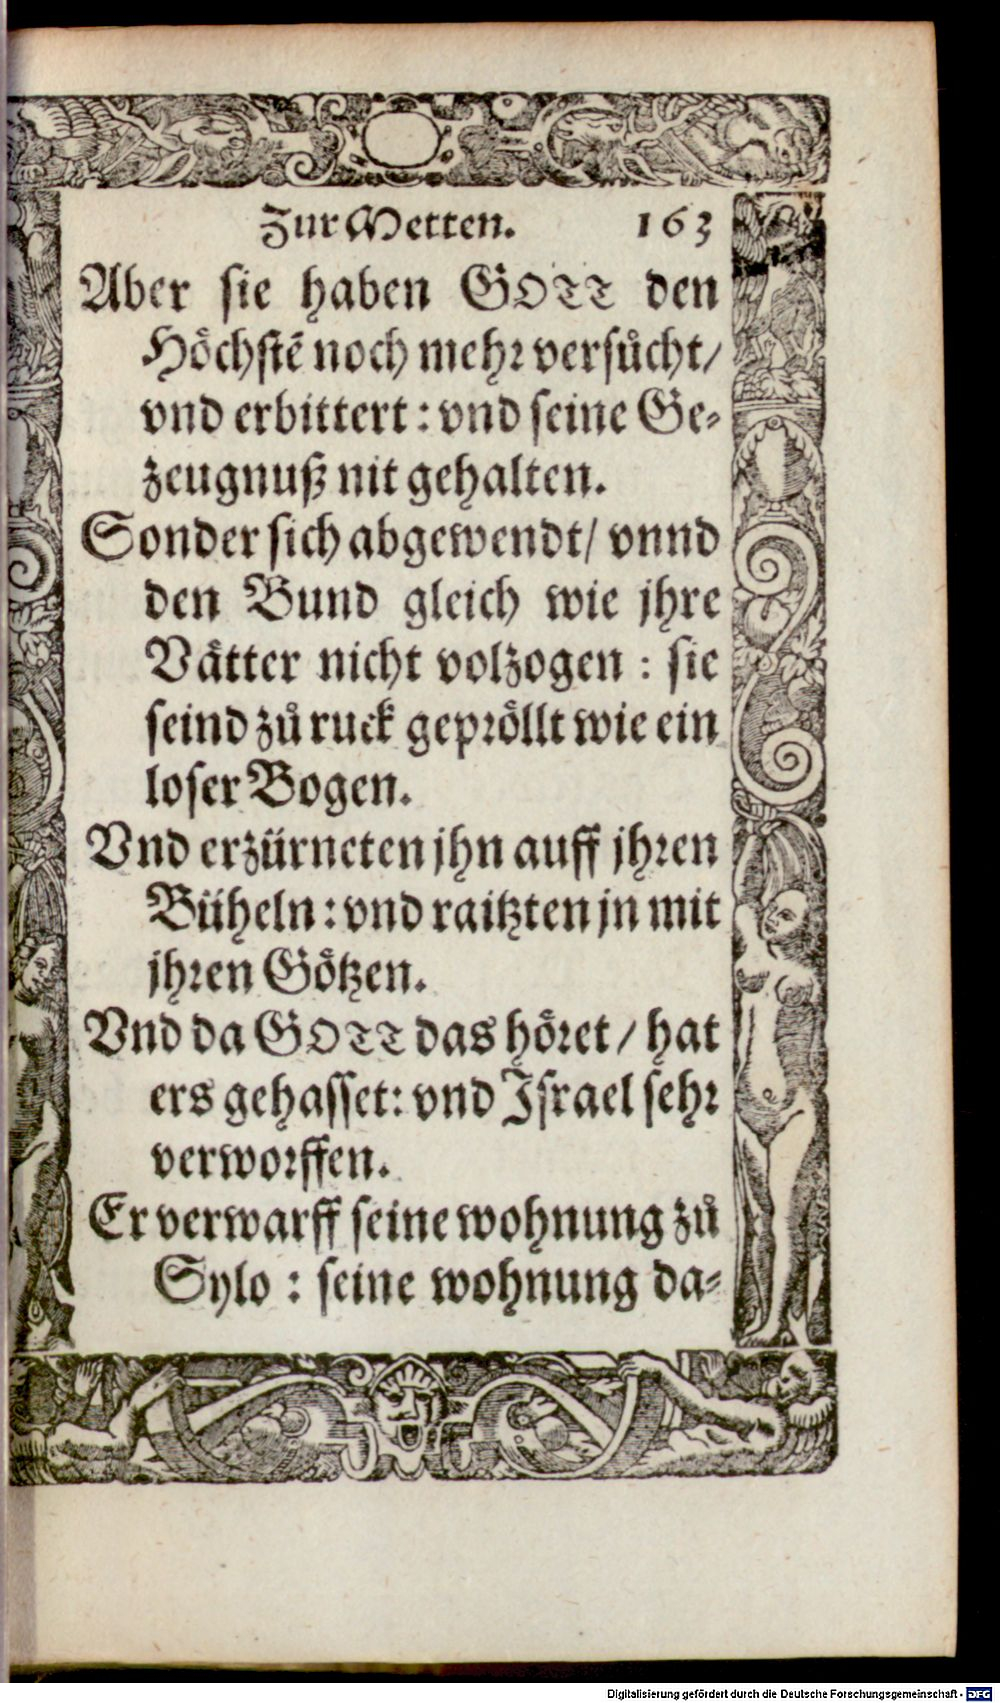 Zur Metten. 163
Aber sie haben GOTT den
Höchstẽ noch mehr versůcht/
vnd erbittert: vnd seine Ge-
zeugnuß nit gehalten.
Sonder sich abgewendt/ vnnd
den Bund gleich wie jhre
Vätter nicht volzogen: sie
seind zů ruck gepröllt wie ein
loser Bogen.
Vnd erzürneten jhn auff jhren
Büheln: vnd raitzten jn mit
jhren Götzen.
Vnd da GOTT das höret/ hat
ers gehasset: vnd Israel sehr
verworffen.
Er verwarff seine wohnung zů
Sylo: seine wohnung da-
Digitalisierung gefördert durch die Deutsche Forschungsgemeinschaft - DFG